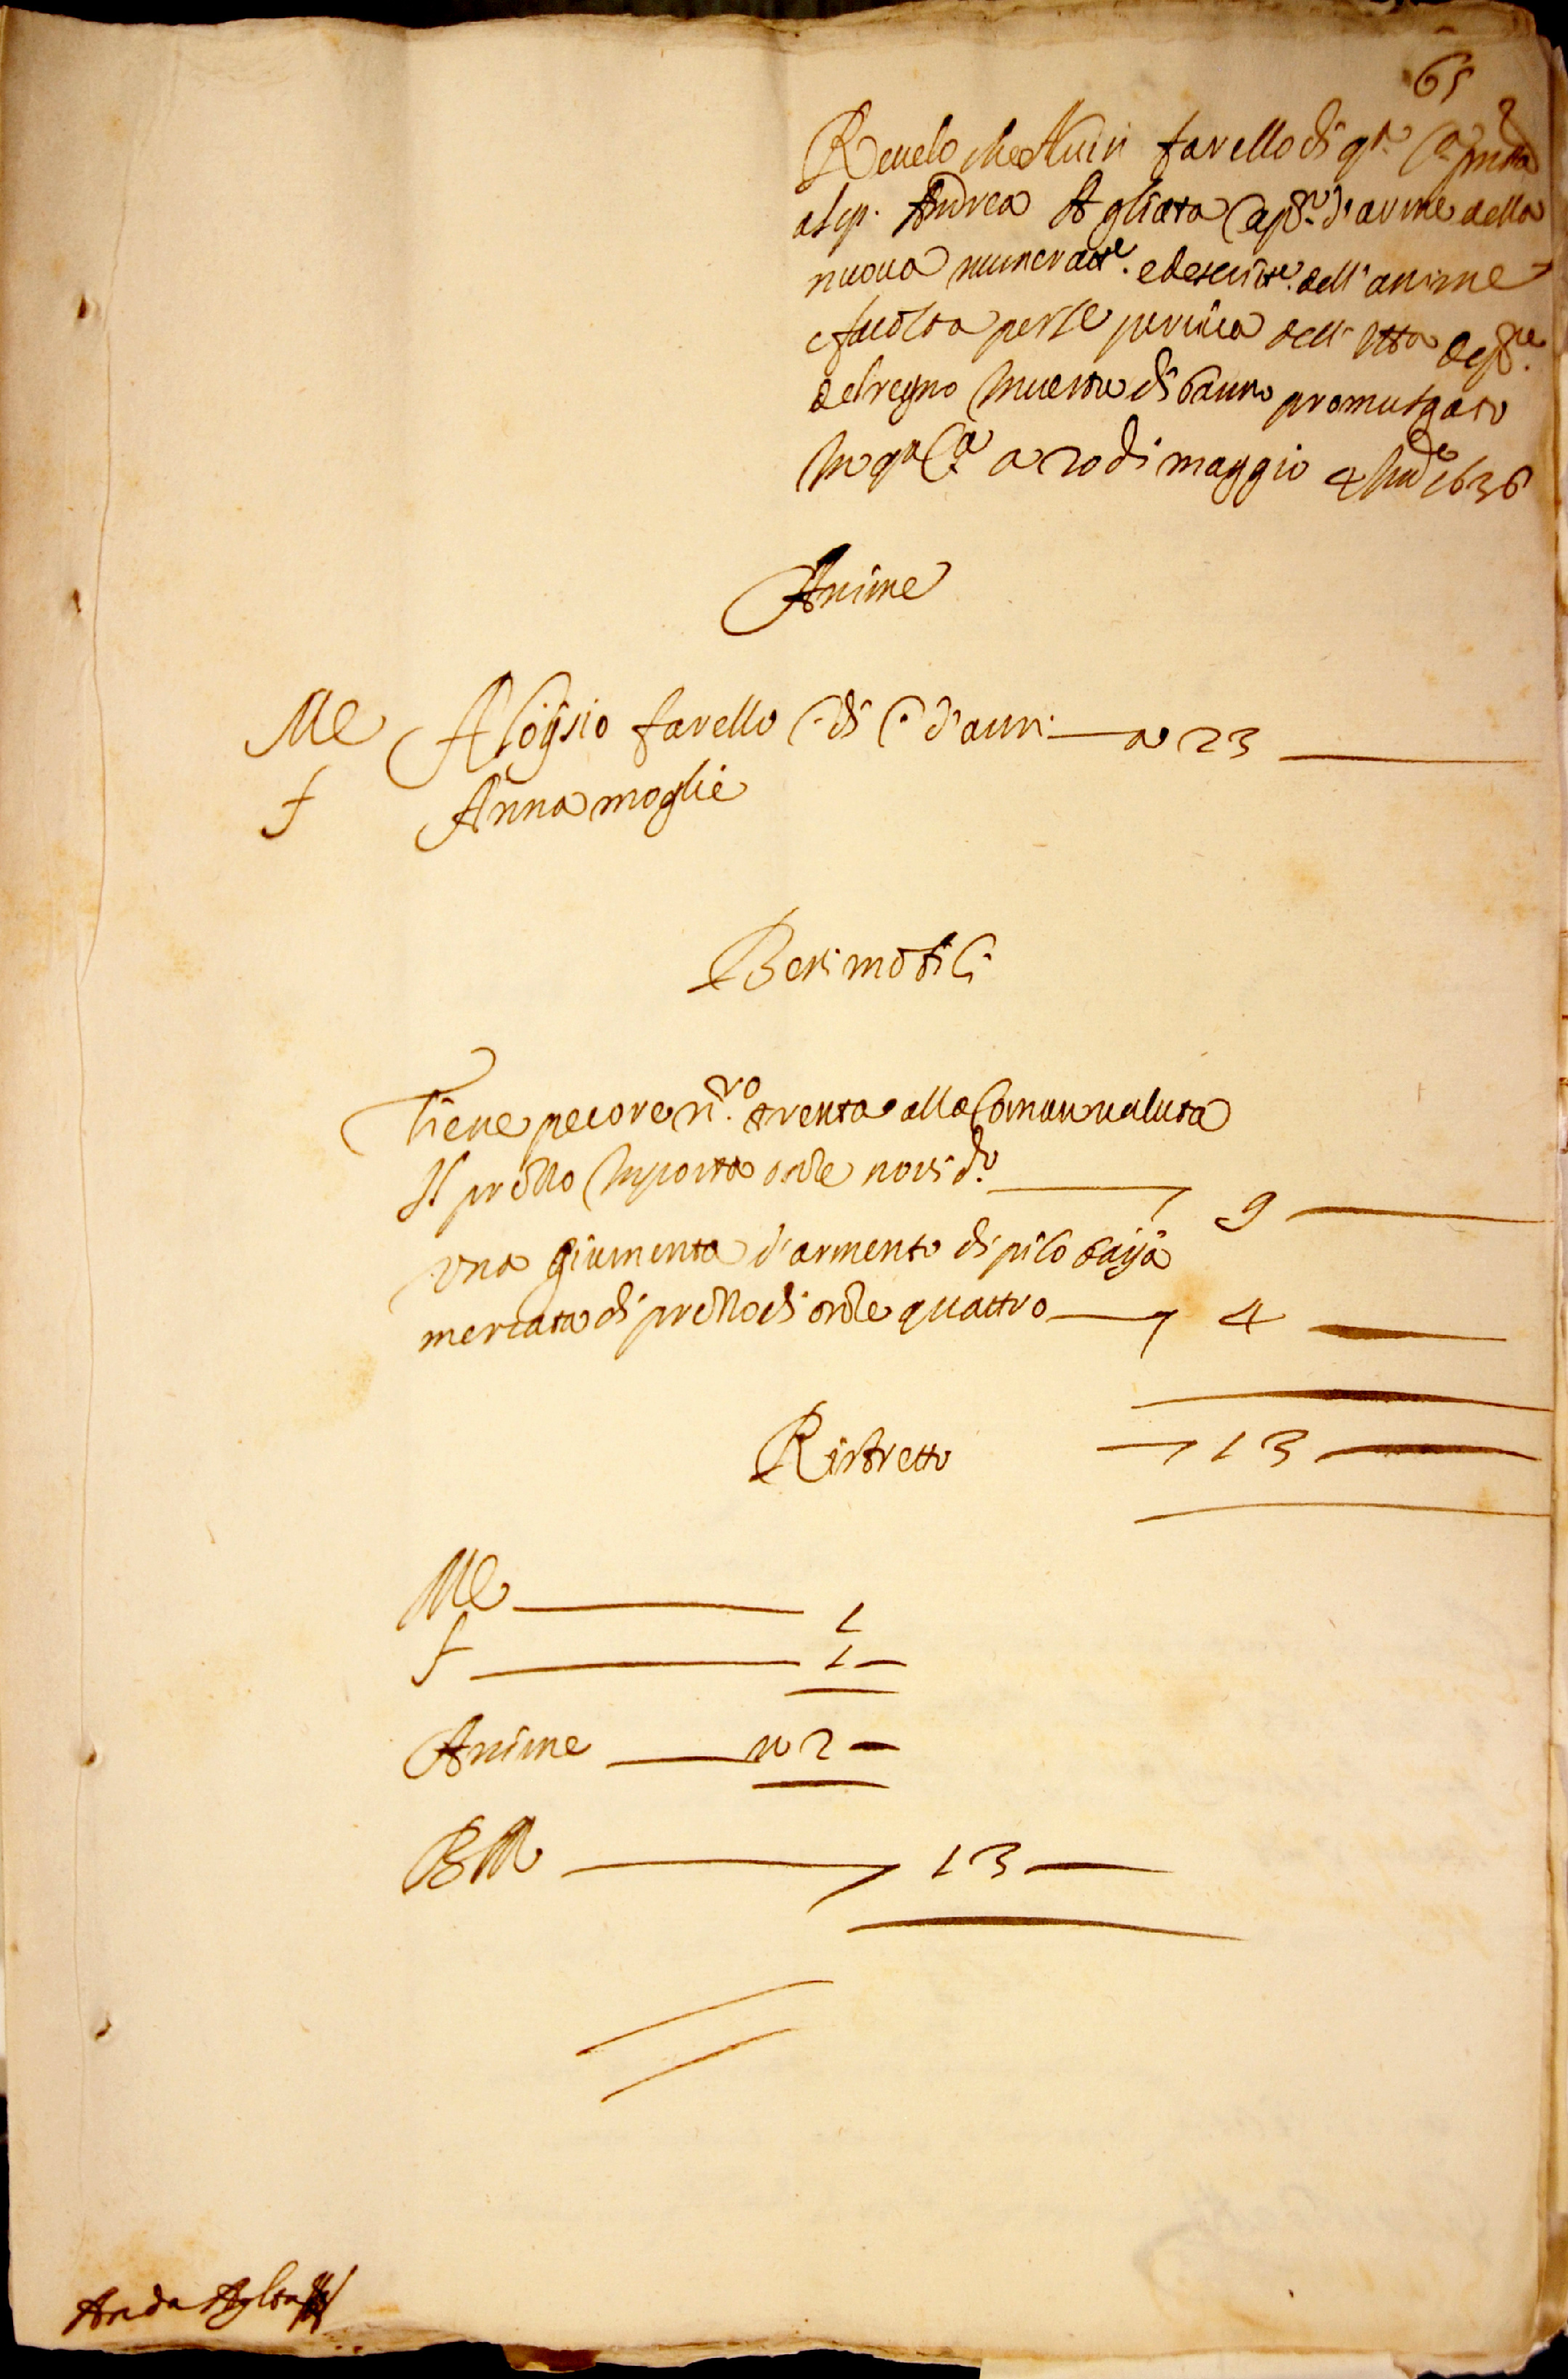 65
Revelo che Luisi favello di q.ta C.a
al sp. Andrea Agliata Cap.no d'arme della
nuova numerat.e e descritt.e dell'anime
e facolta per se
del regno di banno promulgato
in q.ta C.a a 20 di maggio 4 Ind.e 1636
Anime
Me Aloysio favello C. di C. d'anni — a 23 —
f Anna moglie
Beni mobili
Tiene pecore n.ro trenta alla Comun valuta
Il prezzo importa onze novi d.o — 9 —
Una giumenta d'armento di pilo baya
mercata di prezzo di onze quattro — 4 —
Ristretto — 13 —
Me — 1
f — 1 —
Anime — n 2 —
BM — 13 —